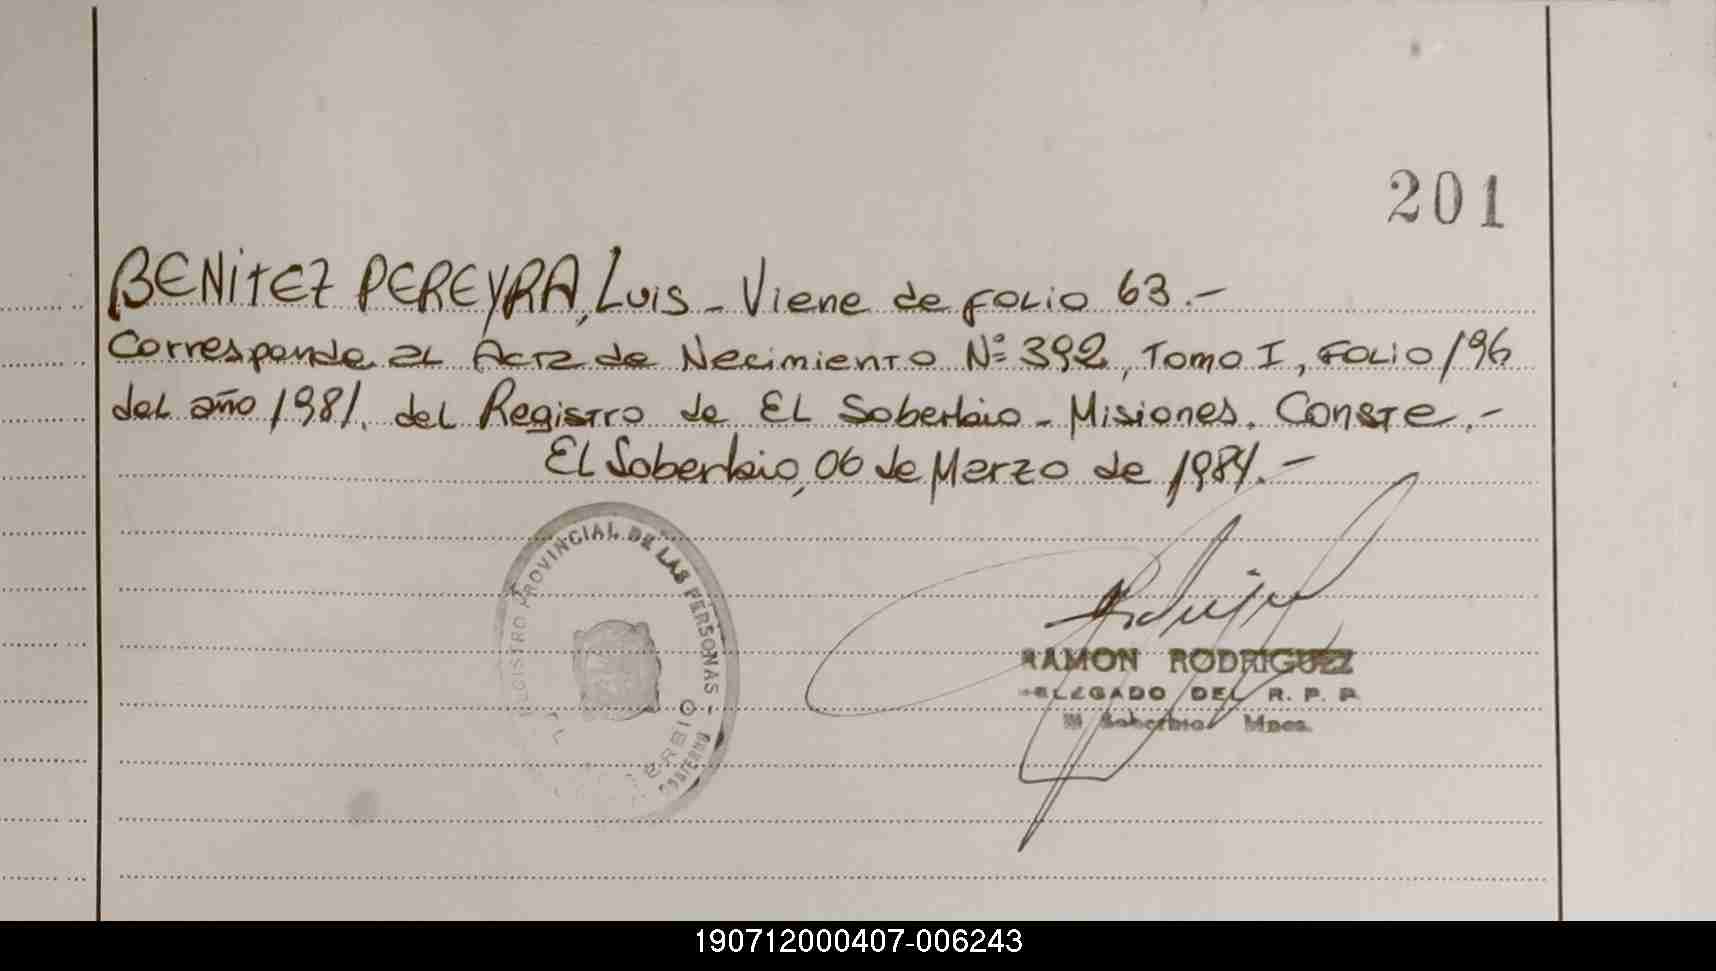 201
BENITEZ PEREYRA, Luis - Viene de folio 63.-
Corresponde al Acta de Nacimiento Nº 392, Tomo I, Folio 196
del año 1981. del Registro de El Soberbio - Misiones. Conste.-
El Soberbio, 06 de Marzo de 1984.-
REGISTRO PROVINCIAL DE LAS PERSONAS -
RAMON RODRIGUEZ
DELEGADO DEL R. P. P.
El Soberbio Mnes.
190712000407-006243